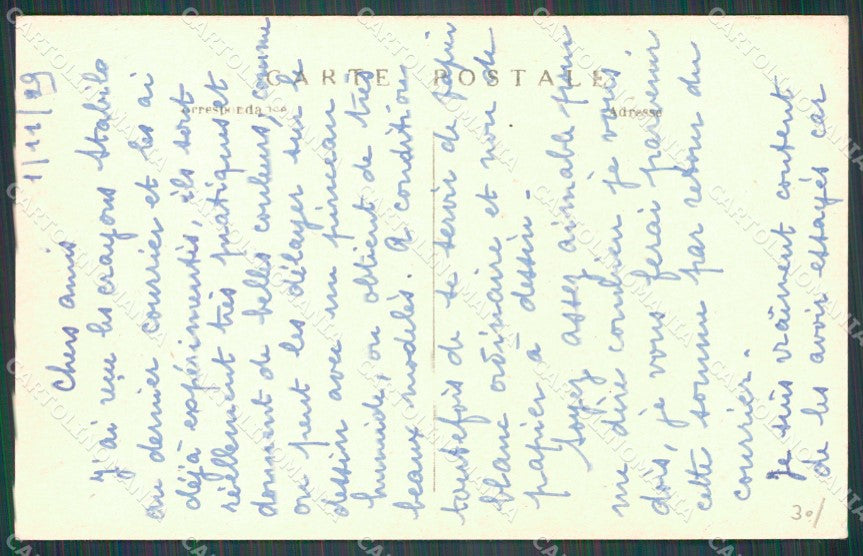 CARTE POSTALE
Correspondance
Adresse
1/11/29
Chers amis
J'ai reçu les crayons Stabilo
au dernier courrier et les ai
déjà expérimentés, ils sont
réellement très pratiques et
donnent de belles couleurs, comme
on peut les délayer sur le
dessin avec un pinceau
humide, on obtient de très
beaux modelés. A condition
toutefois de se servir de papier
blanc ordinaire et non de
papier à dessin.
Soyez assez aimable pour
me dire combien je vous
dois, je vous ferai parvenir
cette somme par retour du
courrier.
Je suis vraiment content
de les avoir essayés car
30/
CARTOLINOMANIA